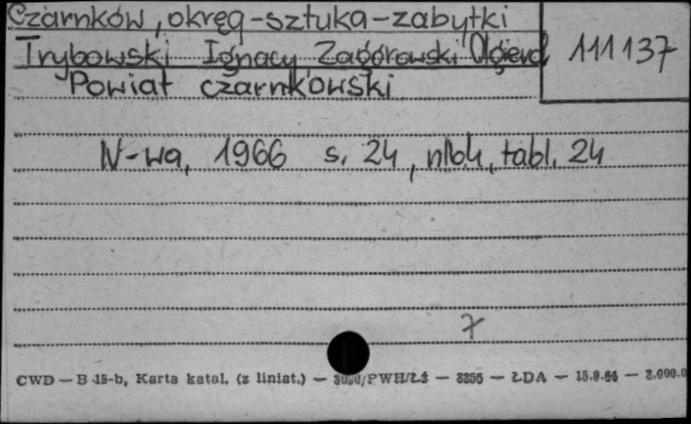 Czarnków, okręg-sztuka-zabytki
Trybowski Ignacy Zagórowski Olgierd
111137
Powiat czarnkowski
W-wa, 1966 s. 24, nlb4, tabl. 24
7
CWD — B 15-b, Karta katal. (z liniat.) — PWH/Łż — 8255 — ŁDA — 15.9.64 — 2.000.0